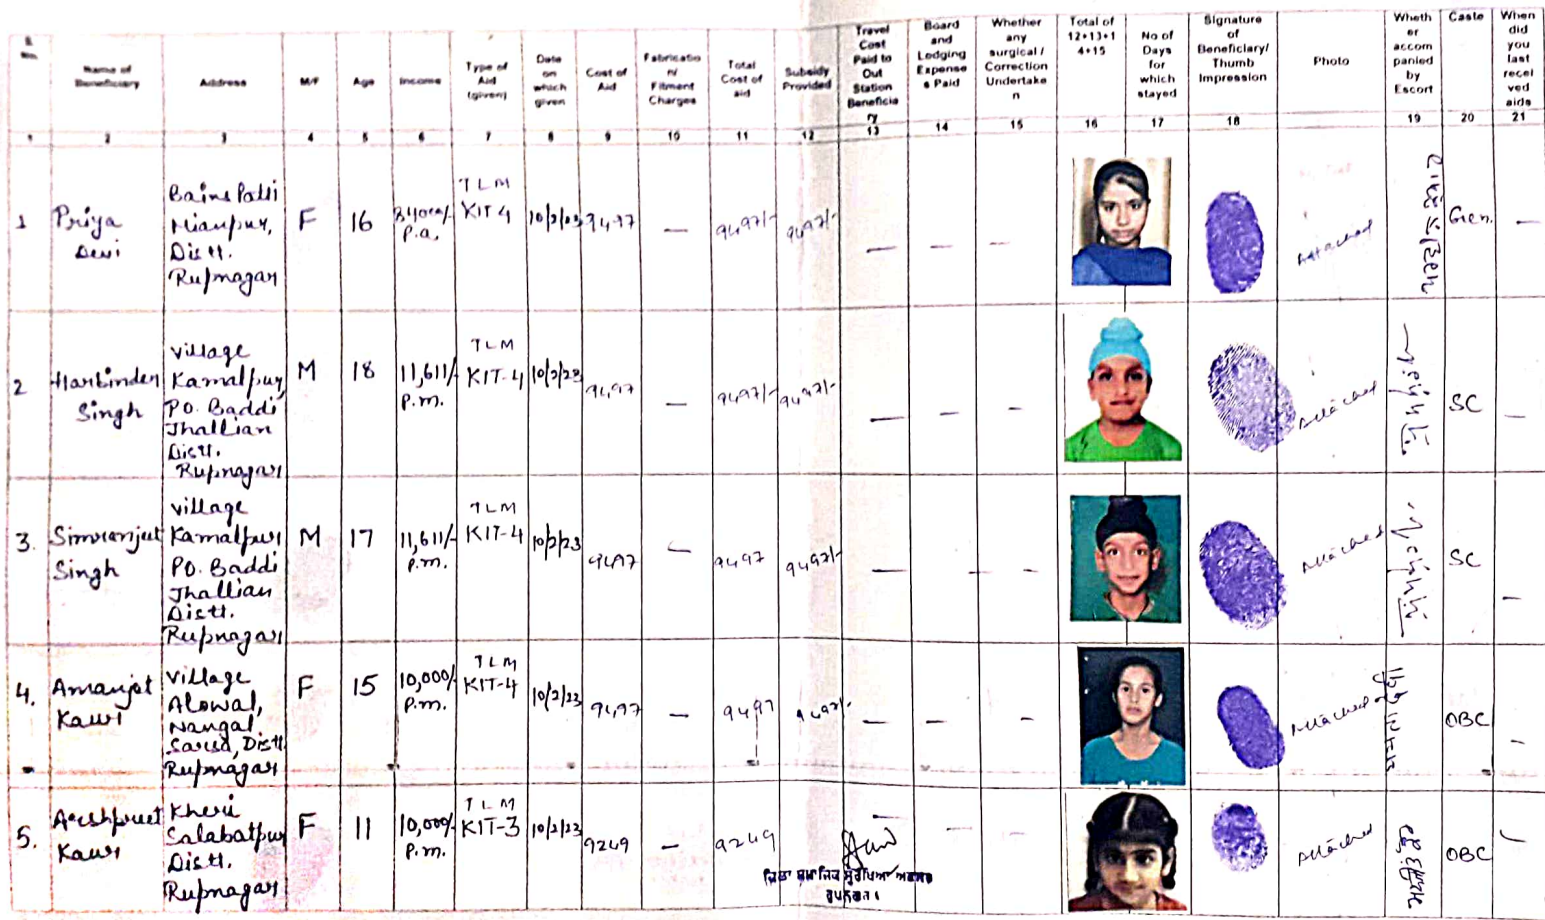 Name of Beneficiary
Address
M/F
Age
Income
Type of Aid (given)
Date on which given
Cost of Aid
Fabrication/ Fitment Charges
Total Cost of aid
Subsidy Provided
Travel Cost Paid to Out Station Beneficiary
Board and Lodging Expenses Paid
Whether any surgical / Correction Undertaken
Total of 12+13+14+15
No of Days for which stayed
Signature of Beneficiary/ Thumb Impression
Photo
Whether accompanied by Escort
Caste
When did you last received aids
1 2 3 4 5 6 7 8 9 10 11 12 13 14 15 16 17 18 19 20 21
1 Priya Devi
Bains Patti
Mianpur,
Distt.
Rupnagar
F 16
P.a.
TLM
KIT-4
9497/- 9497/-
Attached
Gen.
2 Harbinder Singh
Village
Kamalpur,
PO. Baddi
Jhallian
Distt.
Rupnagar
M 18 11,611/- P.m.
TLM
KIT-4 10/2/23 9497 — 9497/- 9497/-
Attached
SC
3. Simranjeet Singh
Village
Kamalpur
PO. Baddi
Jhallian
Distt.
Rupnagar
M 17 11,611/- P.m.
TLM
KIT-4 10/2/23 9497 — 9497 9497/-
Attached
SC
4. Amanjot Kaur
Village
Alowal,
Nangal
Distt.
Rupnagar
F 15 10,000/- P.m.
TLM
KIT-4 10/2/23 9497 — 9497 9497/-
Attached
OBC
5. Arshpreet Kaur
Kheri
Salabatpur
Distt.
Rupnagar
F 11 10,000/- P.m.
TLM
KIT-3 10/2/23 9249 — 9249
Attached
OBC
ਜ਼ਿਲਾ ਸਮਾਜਿਕ ਸੁਰੱਖਿਆ ਅਫਸਰ
ਰੂਪਨਗਰ।